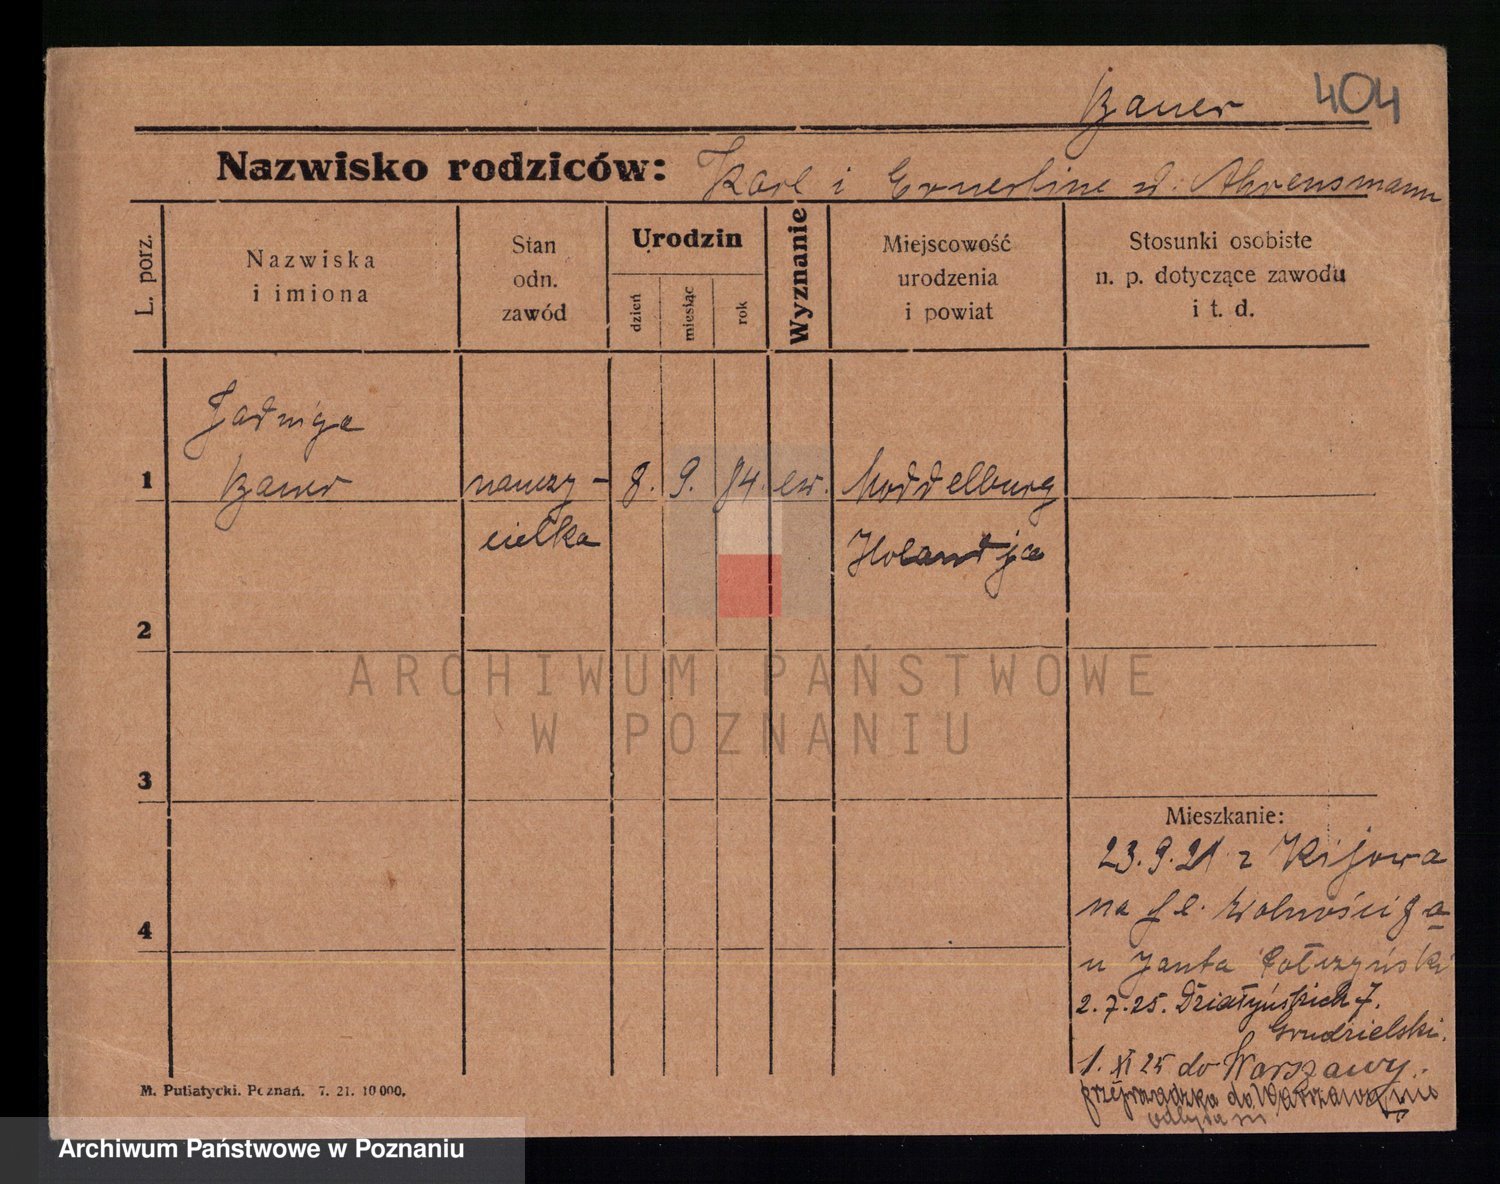 Bauer 404
Nazwisko rodziców: Karl i Ernestine d. Ahrensmann
L. porz.
Nazwiska
i imiona
Stan
odn.
zawód
Urodzin
dzień
miesiąc
rok
Wyznanie
Miejscowość
urodzenia
i powiat
Stosunki osobiste
n. p. dotyczące zawodu
i t. d.
Jadwiga
1 Bauer nauczy- 8. 9. 84. ew. Moddelburg
cielka Holandja
2
3
Mieszkanie:
23.9.21 z Kijowa
na pl. Wolności 8 a
4
u Janta Połczyński
2.7.25. Działyńskich 7.
Grudzielski.
1. XI 25 do Warszawy.
przeprowadzka do Warszawy nie
odbyta
M. Putiatycki. Poznań. 7. 21. 10 000.
ARCHIWUM PAŃSTWOWE
W POZNANIU
Archiwum Państwowe w Poznaniu